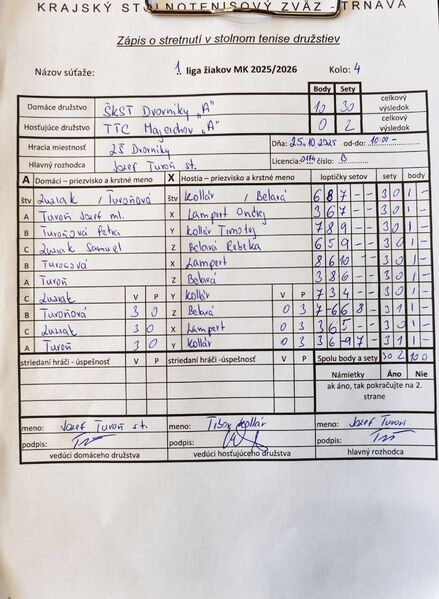 KRAJSKÝ STOLNOTENISOVÝ ZVÄZ - TRNAVA
Zápis o stretnutí v stolnom tenise družstiev
Názov súťaže: 1. liga žiakov MK 2025/2026 Kolo: 4
Body Sety
Domáce družstvo ŠKST Dvorníky "A" 10 30 celkový výsledok
Hosťujúce družstvo TTC Majcichov "A" 0 2 celkový výsledok
Hracia miestnosť ZŠ Dvorníky Dňa: 25.10.2025 od-do: 10:00 -
Hlavný rozhodca Jozef Turoň st. Licencia: číslo: B
A Domáci – priezvisko a krstné meno X Hostia – priezvisko a krstné meno loptičky sety sety body
štv Luziak / Turoňová štv Kollár / Belavá 6 8 7 - - 3 0 1 -
A Turoň Jozef ml. X Lampert Ondrej 3 6 7 - - 3 0 1 -
B Turoňová Petra Y Kollár Timotej 7 8 9 - - 3 0 1 -
C Luziak Samuel Z Belavá Rebeka 6 5 9 - - 3 0 1 -
B Turoňová X Lampert 8 6 10 - - 3 0 1 -
A Turoň Z Belavá 3 8 6 - - 3 0 1 -
C Luziak V P Y Kollár V P 7 3 4 - - 3 0 1 -
B Turoňová 3 0 Z Belavá 0 3 7 -6 6 8 - 3 1 1 -
C Luziak 3 0 X Lampert 0 3 3 6 5 - - 3 0 1 -
A Turoň 3 0 Y Kollár 0 3 3 6 -9 7 - 3 1 1 -
striedaní hráči - úspešnosť V P striedaní hráči -úspešnosť V P Spolu body a sety 30 2 10 0
Námietky Áno Nie
ak áno, tak pokračujte na 2. strane
meno: Jozef Turoň st. meno: Tibor Kollár meno: Jozef Turoň
podpis: podpis: podpis:
vedúci domáceho družstva vedúci hosťujúceho družstva hlavný rozhodca